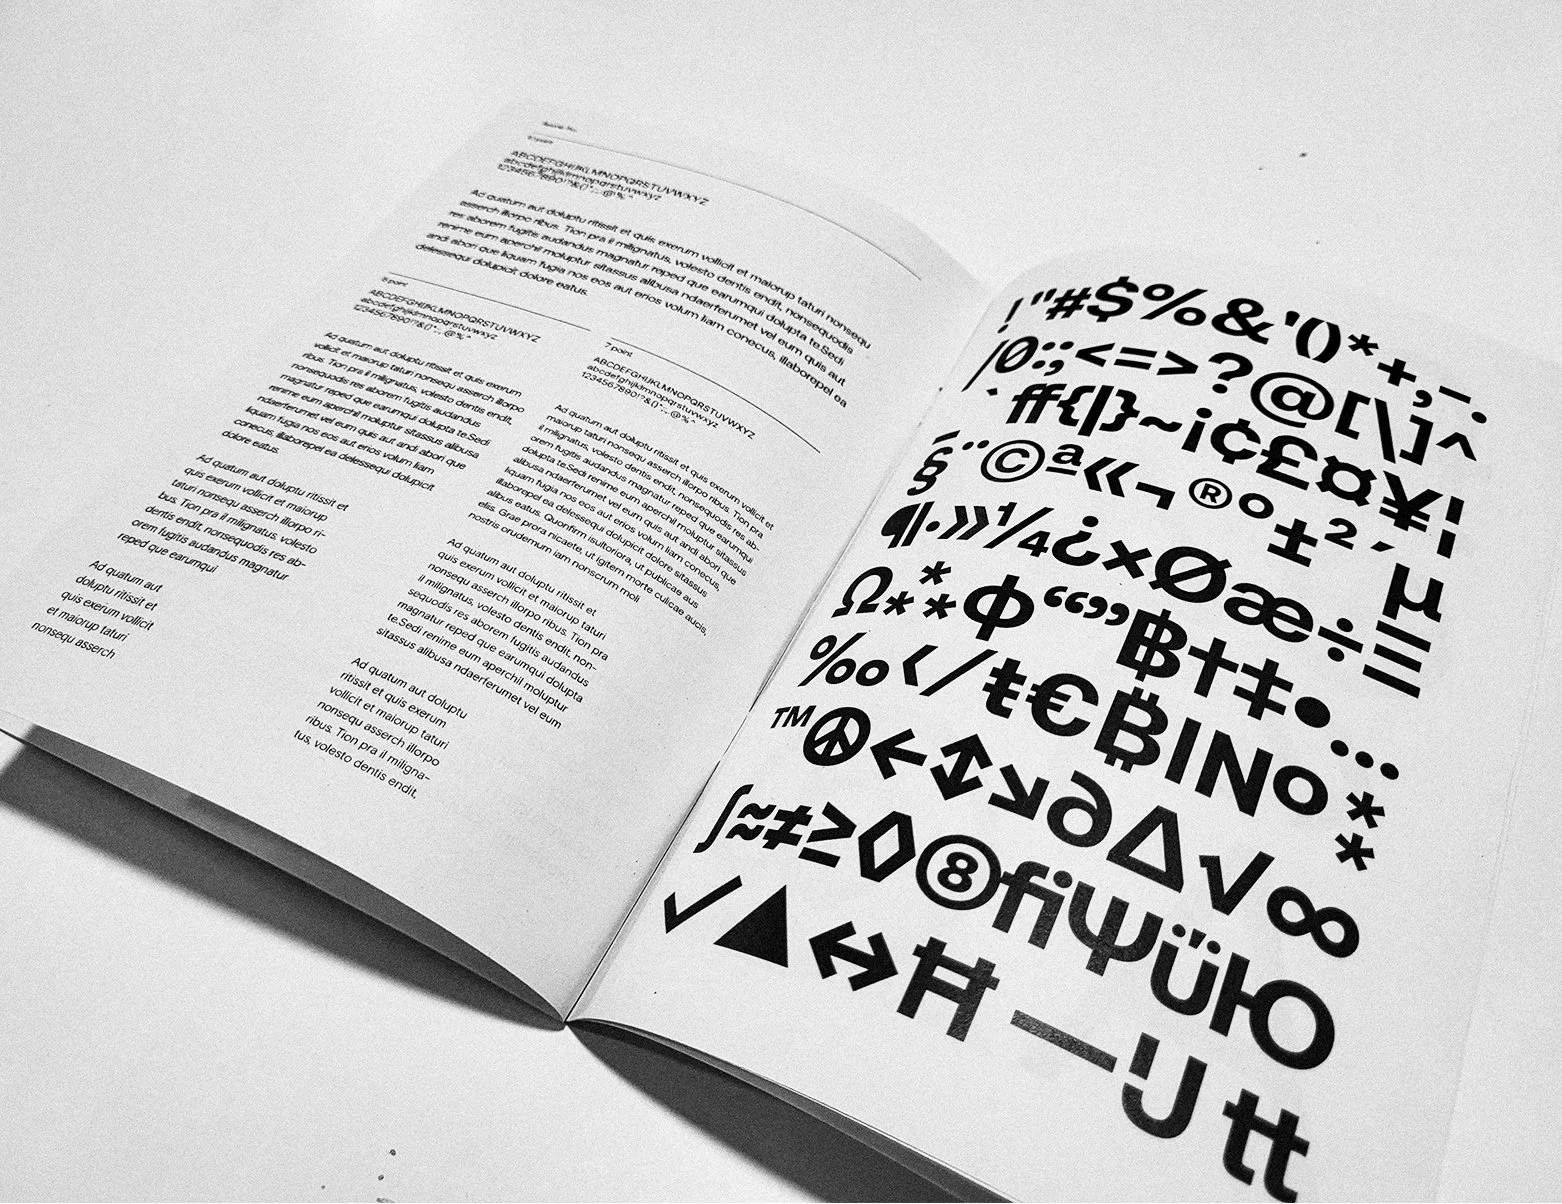 ABCDEFGHIJKLMNOPQRSTUVWXYZ
abcdefghijklmnopqrstuvwxyz
1234567890!?&()*:;,.@%^
Ad quatum aut doluptu ritissit et quis exerum vollicit et maiorup taturi nonsequ
asserch illorpo ribus. Tion pra il milignatus, volesto dentis endit, nonsequodis
res aborem fugitis audandus magnatur reped que earumqui dolupta te.Sedi
renime eum aperchil moluptur sitassus alibusa ndaerferumet vel eum quis aut
andi abori que liquam fugia nos eos aut erios volum liam conecus, illaborepel ea
delessequi dolupicit dolore eatus.
8 point
ABCDEFGHIJKLMNOPQRSTUVWXYZ
abcdefghijklmnopqrstuvwxyz
1234567890!?&()*:;,.@%^
Ad quatum aut doluptu ritissit et quis exerum
vollicit et maiorup taturi nonsequ asserch illorpo
ribus. Tion pra il milignatus, volesto dentis endit,
nonsequodis res aborem fugitis audandus
magnatur reped que earumqui dolupta te.Sedi
renime eum aperchil moluptur sitassus alibusa
ndaerferumet vel eum quis aut andi abori que
liquam fugia nos eos aut erios volum liam
conecus, illaborepel ea delessequi dolupicit
dolore eatus.
Ad quatum aut doluptu ritissit et
quis exerum vollicit et maiorup
taturi nonsequ asserch illorpo ri-
bus. Tion pra il milignatus, volesto
dentis endit, nonsequodis res ab-
orem fugitis audandus magnatur
reped que earumqui
Ad quatum aut
doluptu ritissit et
quis exerum vollicit
et maiorup taturi
nonsequ asserch
7 point
ABCDEFGHIJKLMNOPQRSTUVWXYZ
abcdefghijklmnopqrstuvwxyz
1234567890!?&()*:;,.@%^
Ad quatum aut doluptu ritissit et quis exerum vollicit et
maiorup taturi nonsequ asserch illorpo ribus. Tion pra
il milignatus, volesto dentis endit, nonsequodis res ab-
orem fugitis audandus magnatur reped que earumqui
dolupta te.Sedi renime eum aperchil moluptur sitassus
alibusa ndaerferumet vel eum quis aut andi abori que
liquam fugia nos eos aut erios volum liam conecus,
illaborepel ea delessequi dolupicit dolore sitassus,
alibus eatus. Quonfirm isutoriora, ut publicae aus
ellis. Grae prora nicaete, ut igitem morte culicae aucis,
nostris orudemum iam nonscrum moli
Ad quatum aut doluptu ritissit et
quis exerum vollicit et maiorup taturi
nonsequ asserch illorpo ribus. Tion pra
il milignatus, volesto dentis endit, non-
sequodis res aborem fugitis audandus
magnatur reped que earumqui dolupta
te.Sedi renime eum aperchil moluptur
sitassus alibusa ndaerferumet vel eum
Ad quatum aut doluptu
ritissit et quis exerum
vollicit et maiorup taturi
nonsequ asserch illorpo
ribus. Tion pra il miligna-
tus, volesto dentis endit,
!"#$%&'()*+,–.
/0:;<=>?@[\]^
`ff{|}~¡¢£¤¥¦
§¨©ª«¬®°±²´µ
¶·»¼¿×Øæ÷≡
Ω⁂Φ“”฿†‡•…
‰‹⁄ŧ€₿|No⁑
™☮←↕↘∂∆√∞
∫≈≠≥◊⑧fiΨüЮ
✓▲↔Ħ—Ĳtt